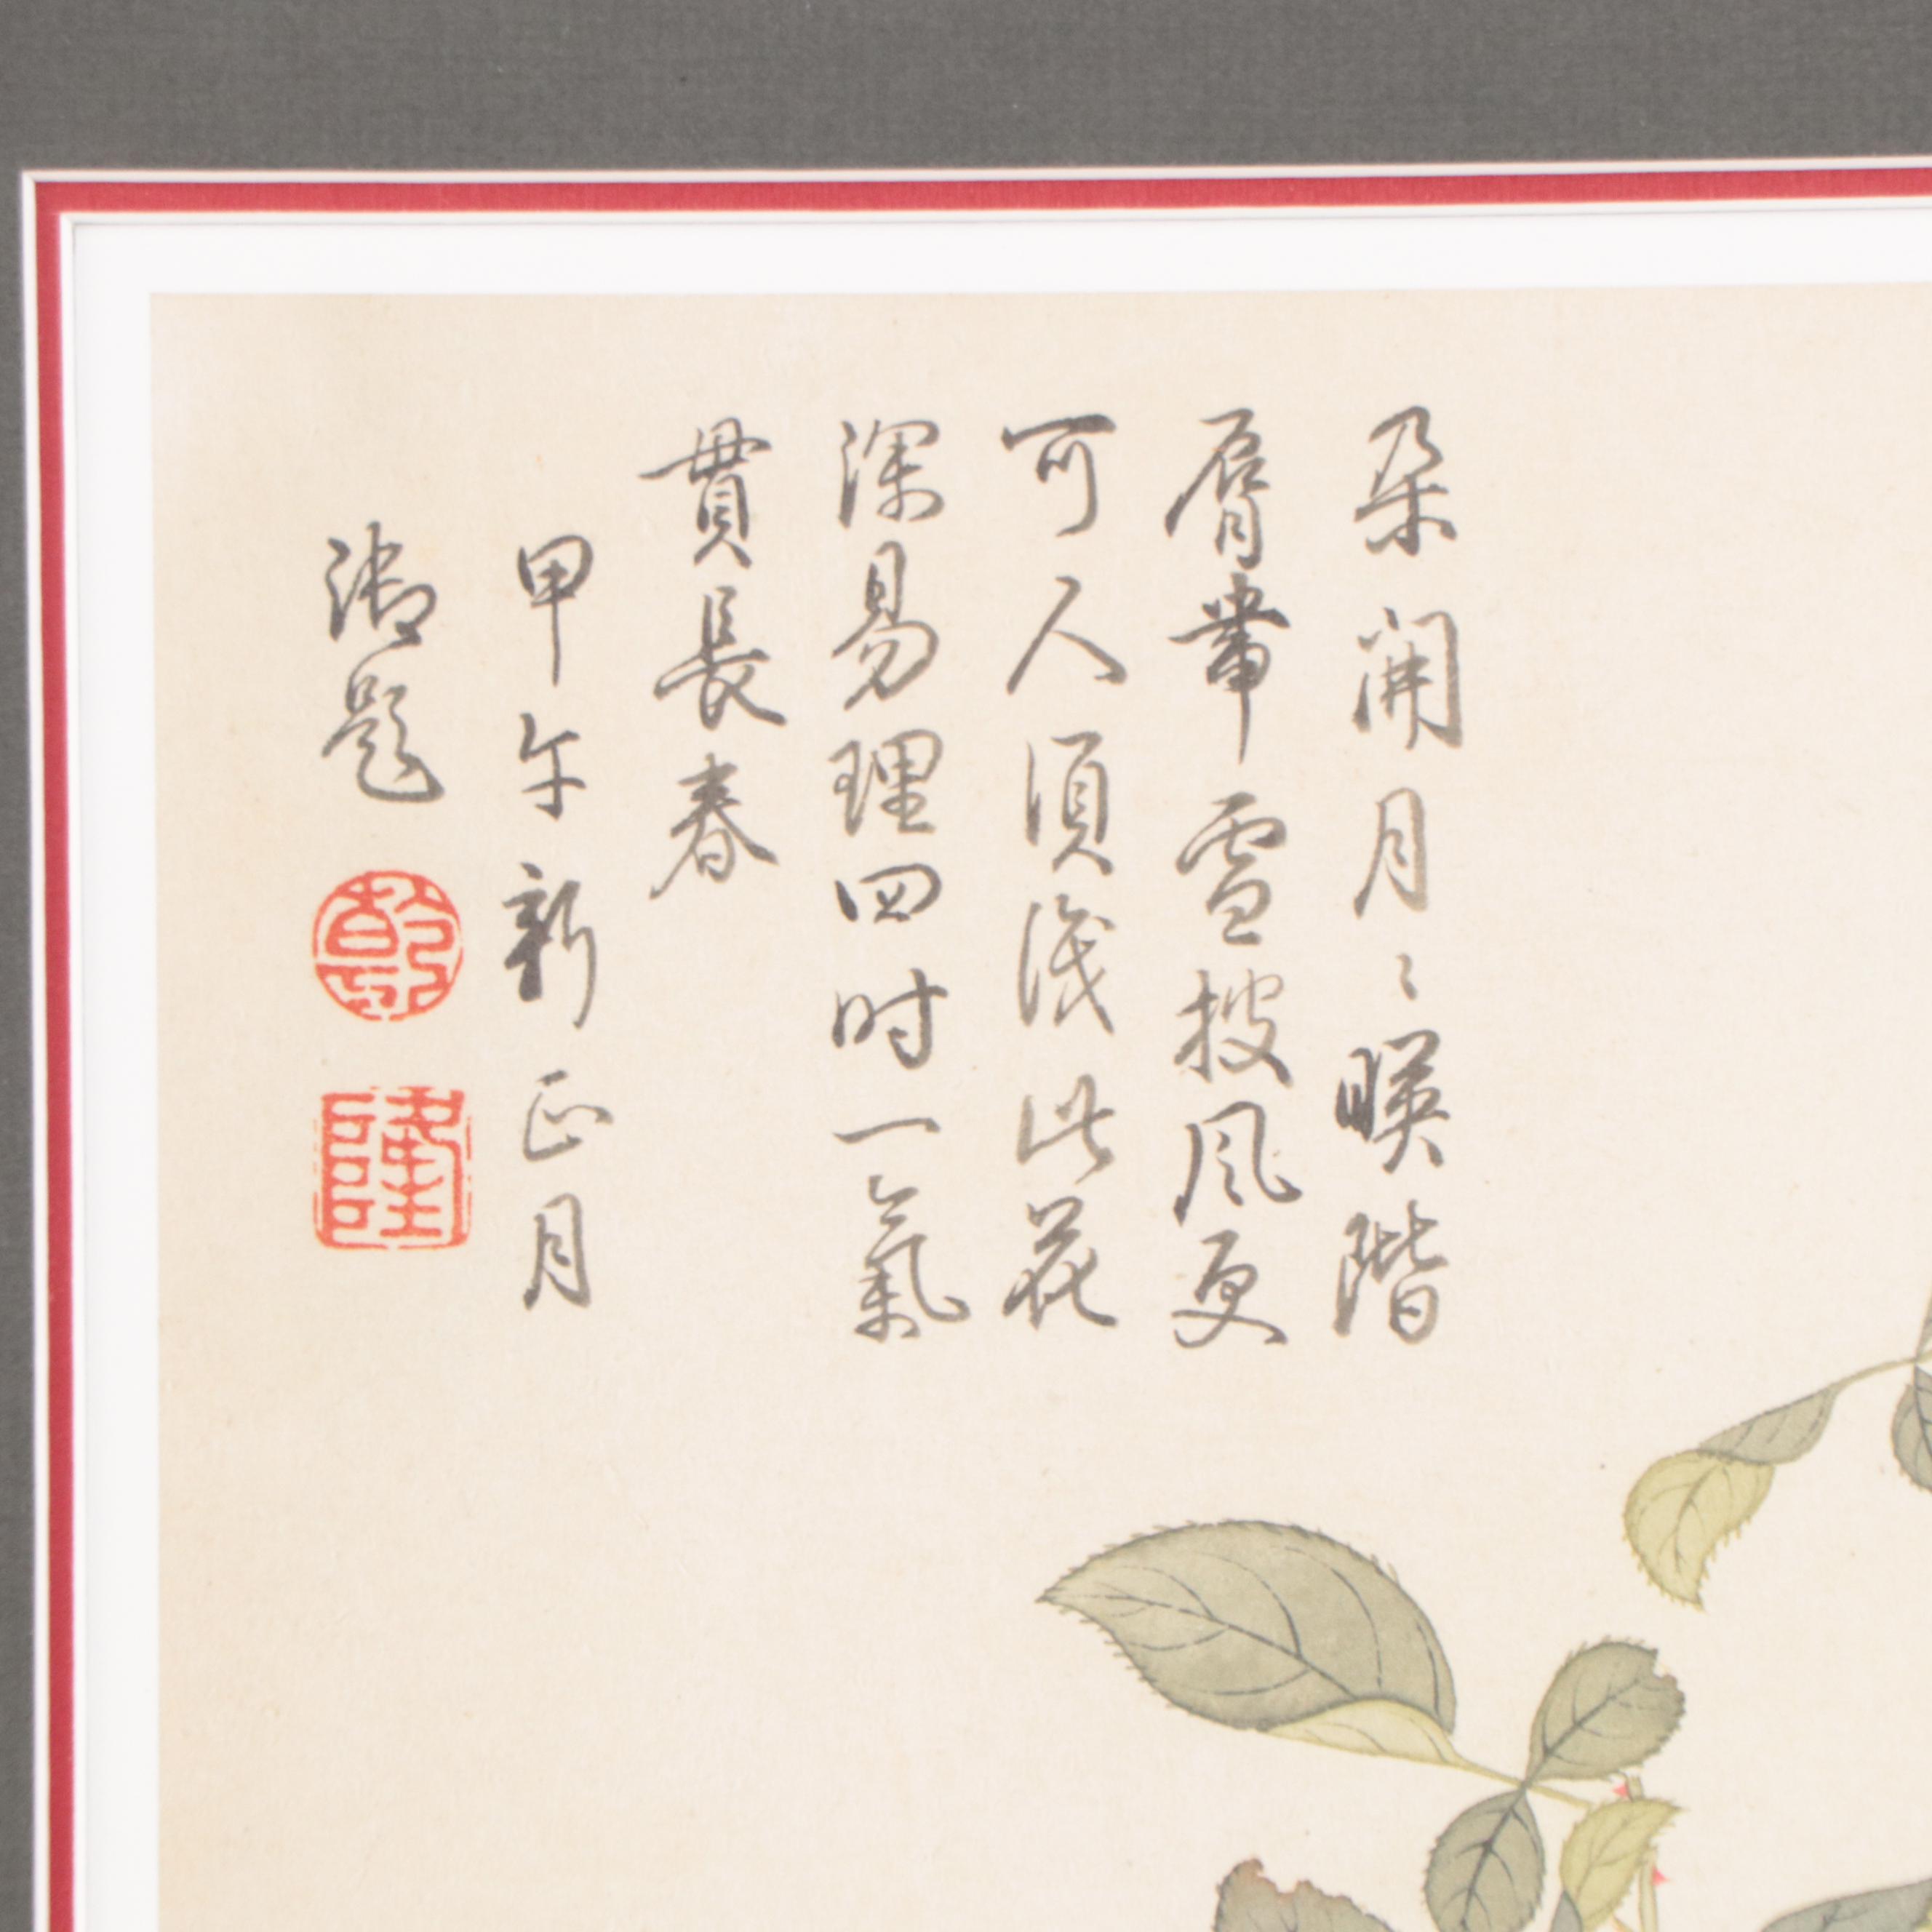 朵開月〻暎階
脣帶雪披風更
可人須識此花
深易理四时一氣
貫長春
甲午新正月
御題
乾
隆